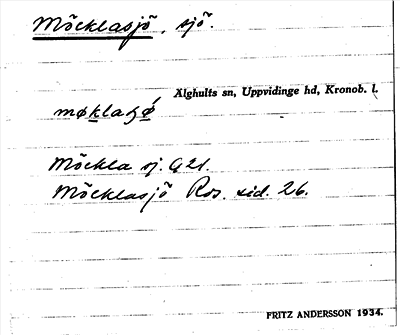 Möcklasjö, sjö.
Älghults sn, Uppvidinge hd, Kronob. l.
Möckla sj. G 21.
Möcklasjö Ros. sid. 26.
FRITZ ANDERSSON 1934.